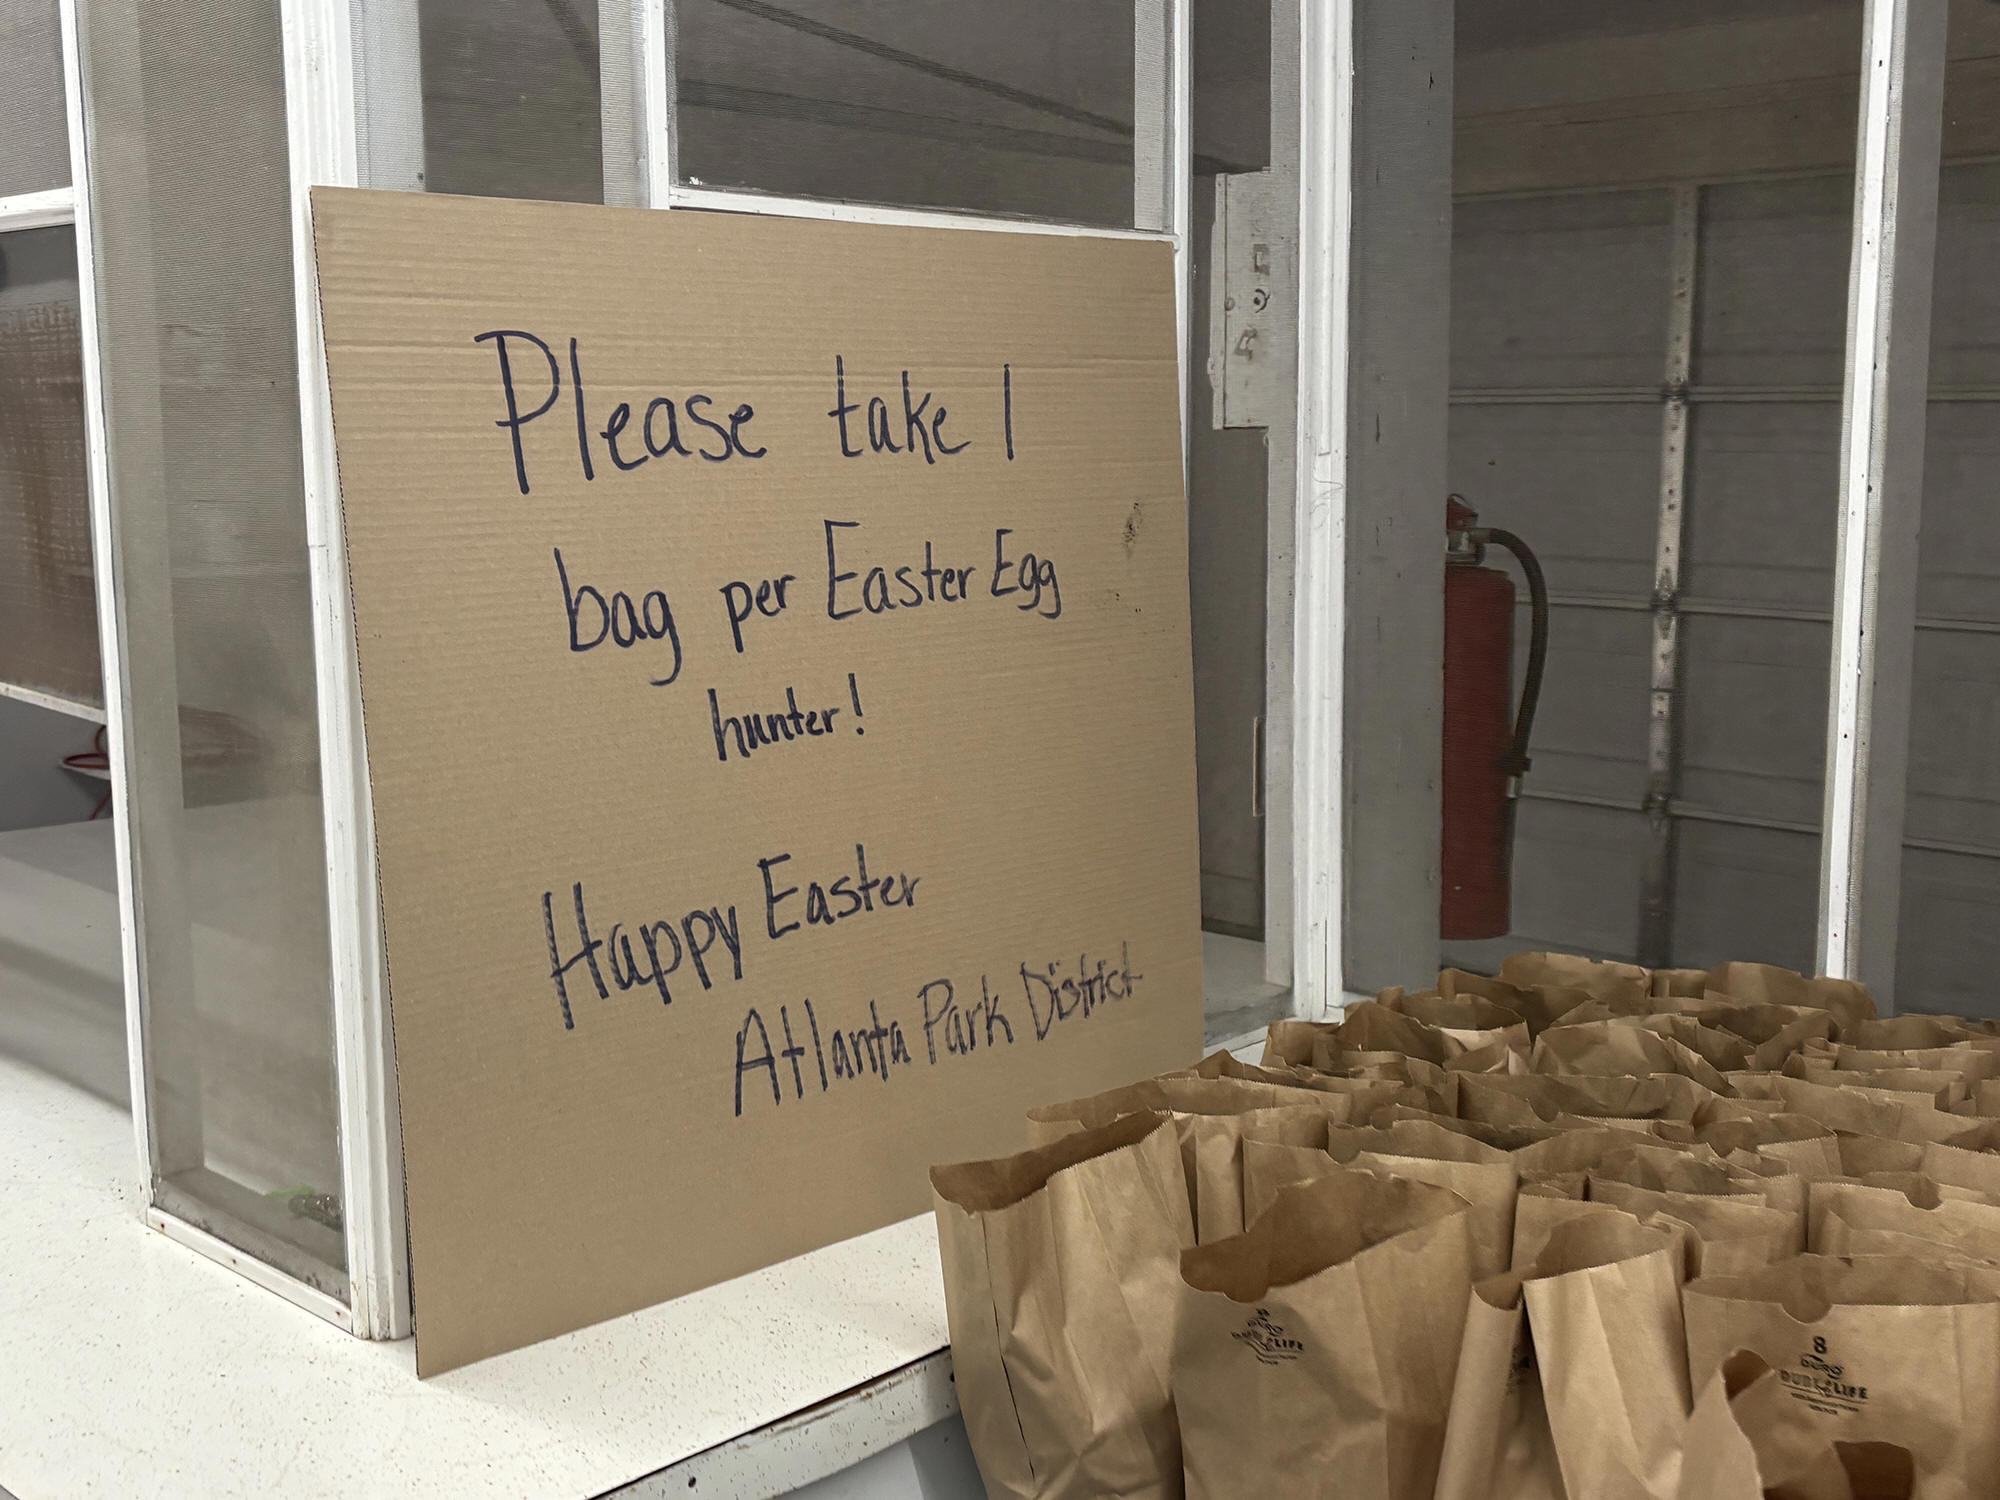 Please take 1
bag per Easter Egg
hunter!
Happy Easter
Atlanta Park District
8
DURO
DUBL LIFE
LIFE